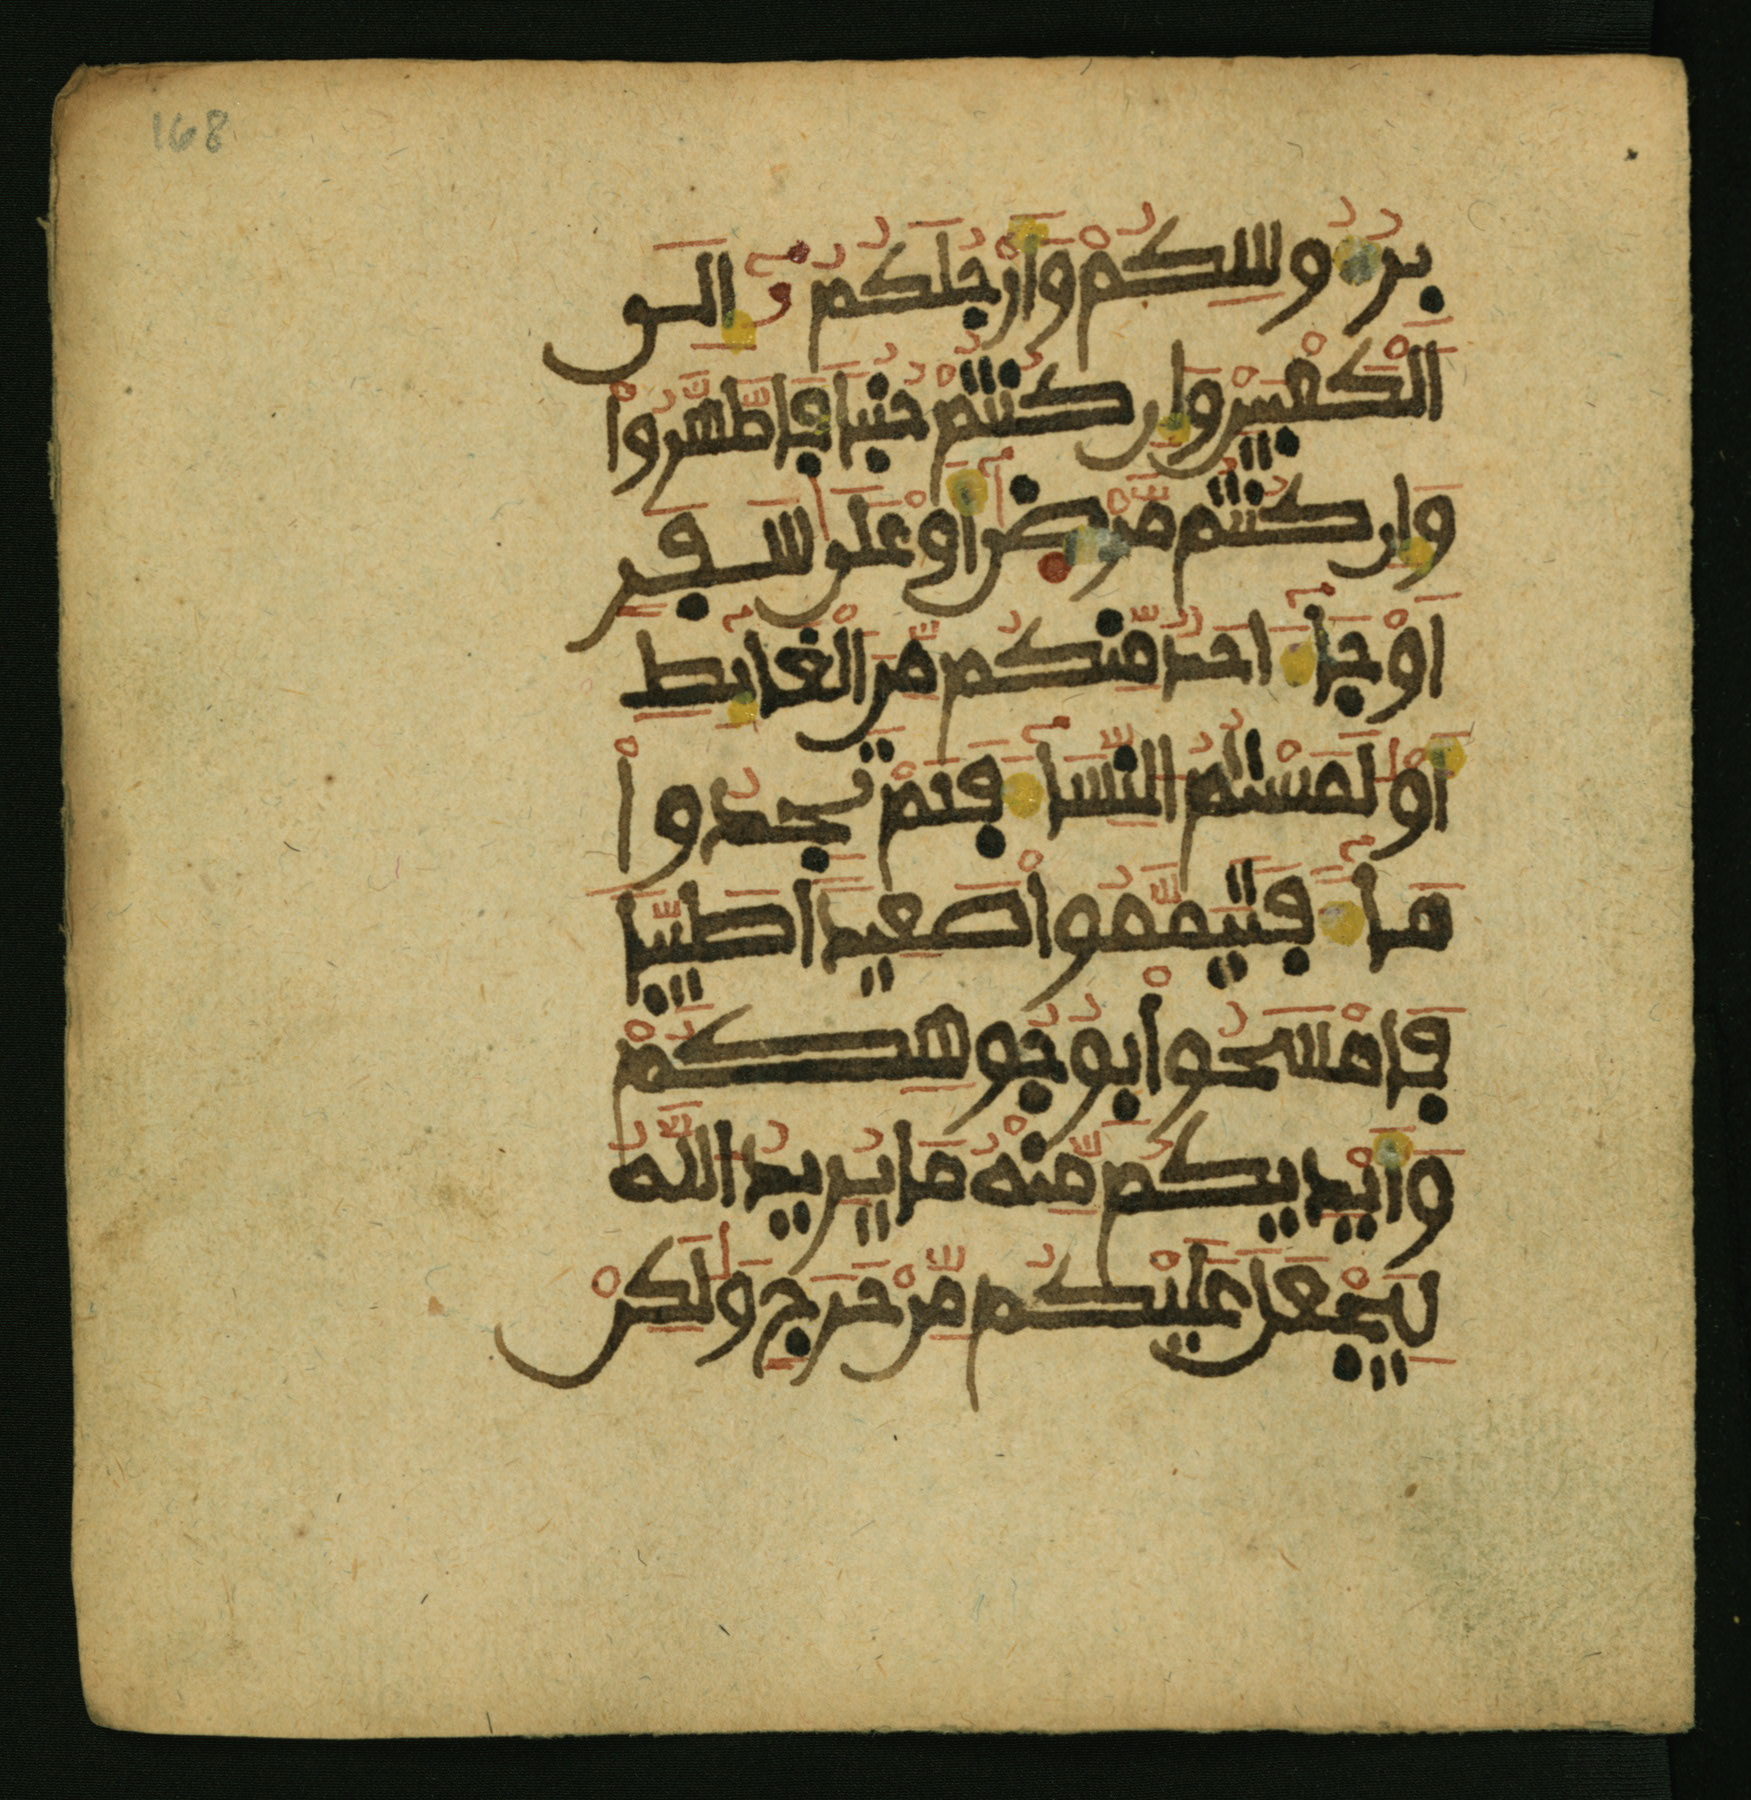 168
بِرُءُوسِكُمْ وَأَرْجُلَكُمُۥٓ إِلَى
الْكَعْبَيْنِ وَإِن كُنتُمْ جُنُبًا فَاطَّهَّرُواْ
وَإِن كُنتُم مَّرْضَىٰٓ أَوْ عَلَىٰ سَفَرٍ
أَوْ جَآءَ احَدٌ مِّنكُم مِّنَ الْغَآئِطِ
أَوْ لَٰمَسْتُمُ النِّسَآءَ فَلَمْ تَجِدُواْ
مَآءً فَتَيَمَّمُواْ صَعِيدًا طَيِّبًا
فَامْسَحُواْ بِوُجُوهِكُمْ
وَأَيْدِيكُم مِّنْهُ مَا يُرِيدُ اللَّهُ
لِيَجْعَلَ عَلَيْكُم مِّنْ حَرَجٍ وَلَٰكِنْ